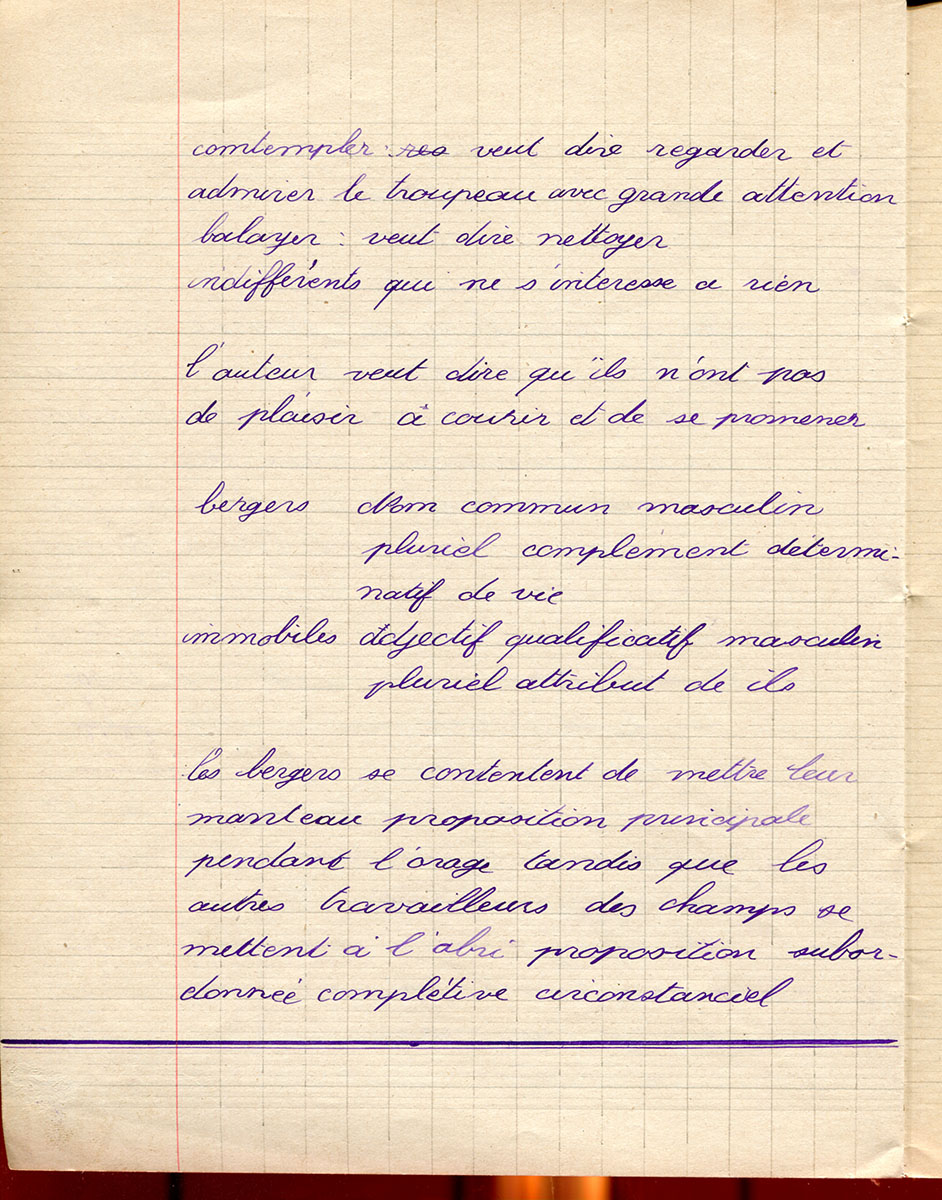 comtempler : res veut dire regarder et
admirer le troupeau avec grande attention
balayer : veut dire nettoyer
indifférents qui ne s'interesse a rien
l'auteur veut dire qu'ils n'ont pas
de plaisir à courir et de se promener
bergers Nom commun masculin
pluriel complement détermi-
natif de vie
immobiles adjectif qualificatif masculin
pluriel attribut de ils
Les bergers se contentent de mettre leur
manteau proposition principale
pendant l'orage tandis que les
autres travailleurs des champs se
mettent à l'abri proposition subor-
donnée complétive circonstanciel